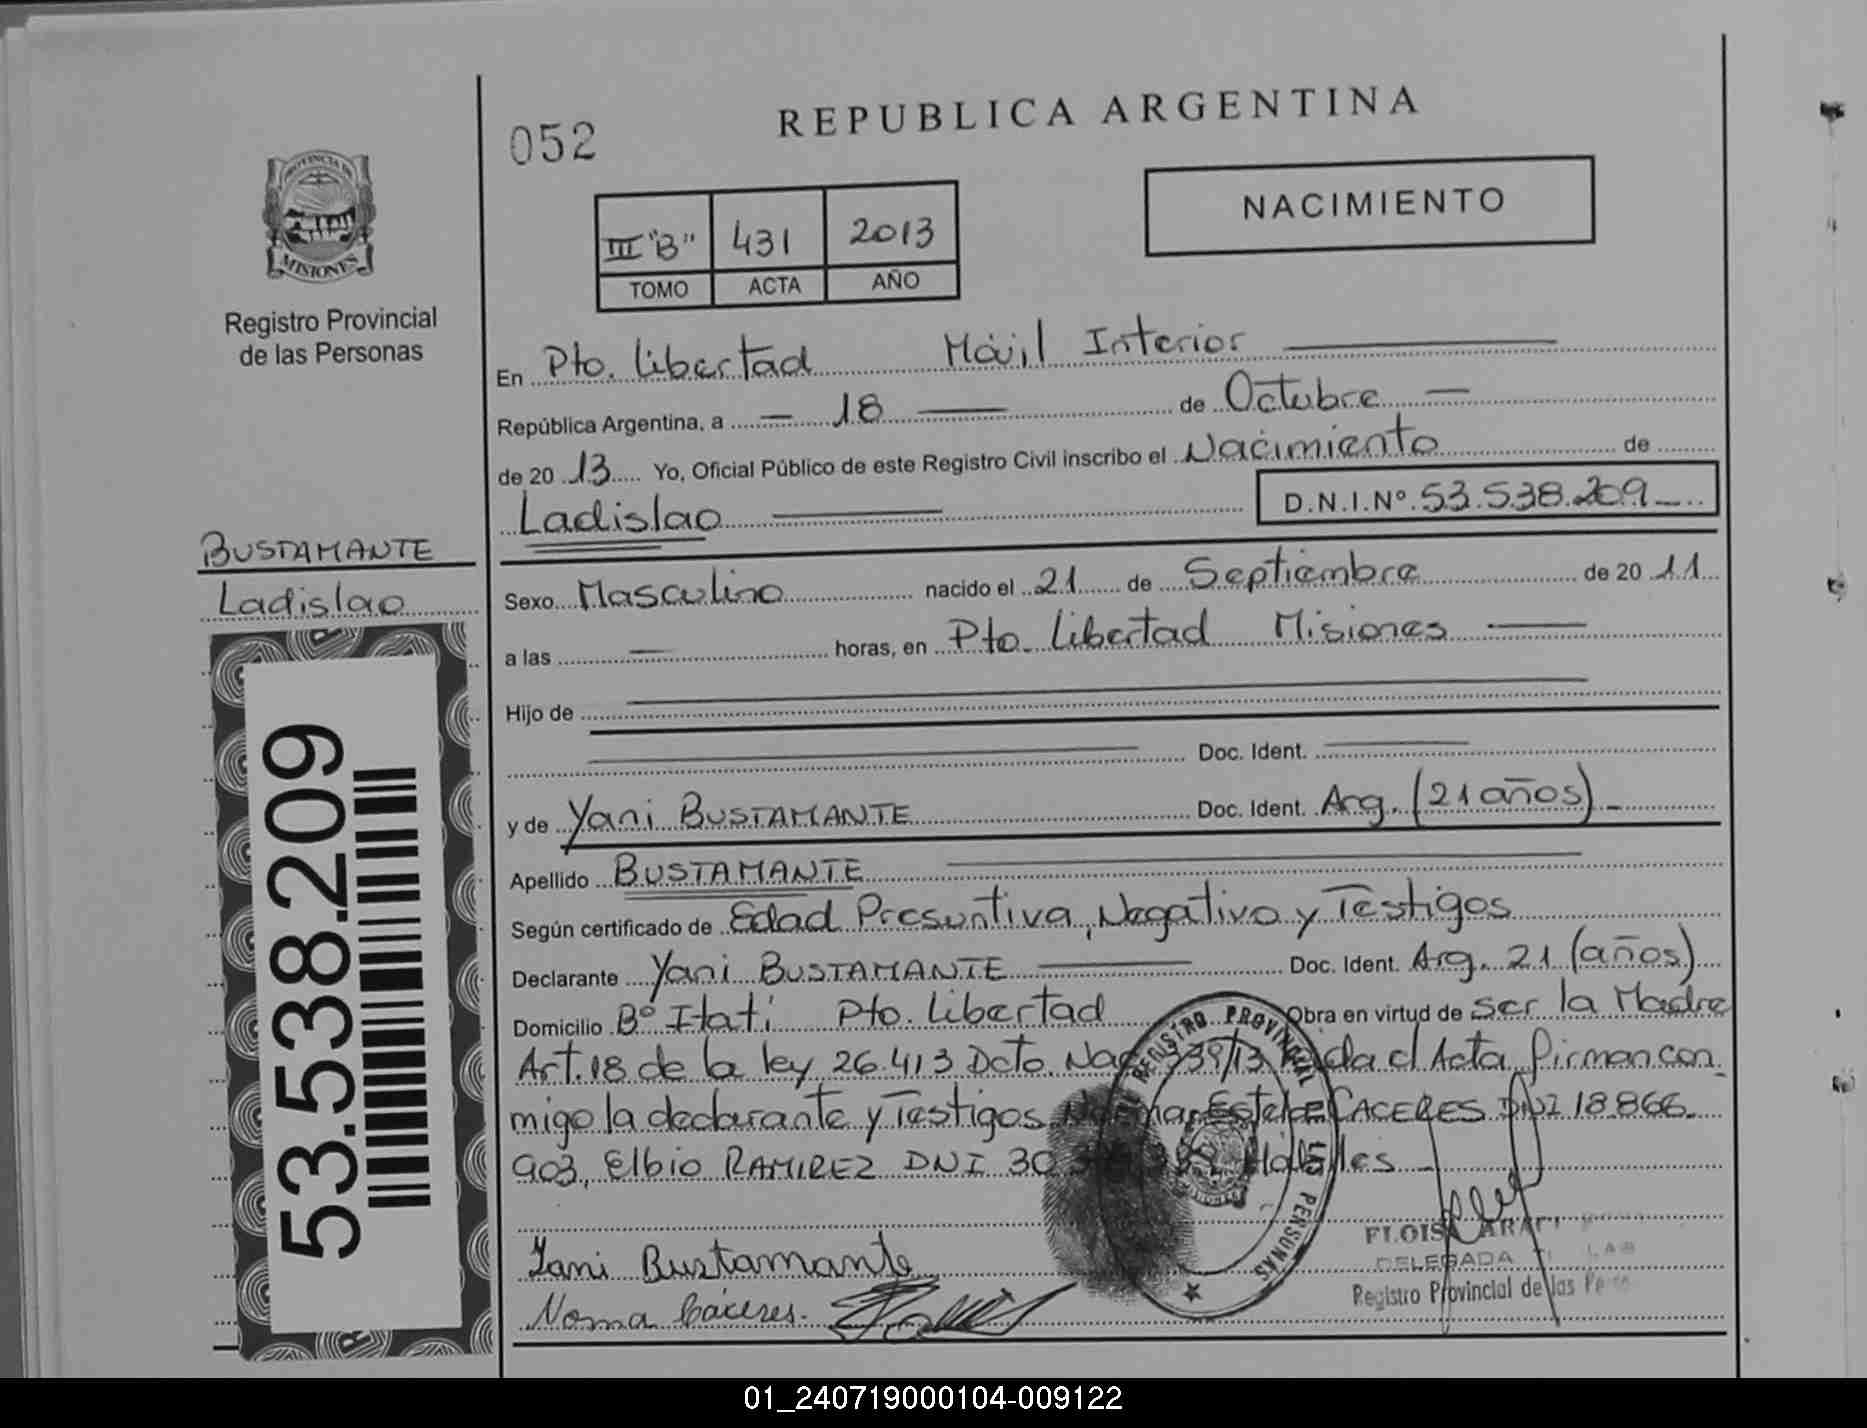 REPUBLICA ARGENTINA
052
NACIMIENTO
III "B" 431 2013
TOMO ACTA AÑO
PROVINCIA DE
MISIONES
Registro Provincial
de las Personas
En Pto. Libertad Móvil Interior
República Argentina, a 18 de Octubre
de 2013 Yo, Oficial Público de este Registro Civil inscribo el Nacimiento de
Ladislao D.N.I.Nº 53.538.209
BUSTAMANTE
Ladislao
53.538.209
Sexo Masculino nacido el 21 de Septiembre de 2011
a las horas, en Pto. Libertad Misiones
Hijo de
Doc. Ident.
y de Yani BUSTAMANTE Doc. Ident. Arg. (21 años)
Apellido BUSTAMANTE
Según certificado de Edad Presuntiva, Negativo y Testigos
Declarante Yani BUSTAMANTE Doc. Ident. Arg. 21 (años)
Domicilio Bº Itatí Pto. Libertad Obra en virtud de ser la Madre
Art. 18 de la ley 26.413 Dcto. Nac 339/13 el Acta firman con
migo la declarante y Testigos Norma Estela CACERES DNI 18.866.
903, Elbio RAMIREZ DNI 30
REGISTRO PROVINCIAL PERSONAS
Yani Bustamante
Norma Cáceres.
DELEGADA
Registro Provincial de las
01_240719000104-009122